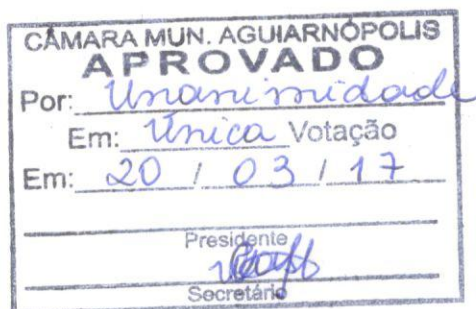 CÂMARA MUN. AGUIARNÓPOLIS
APROVADO
Por: Unanimidade
Em: Única Votação
Em: 20 / 03 / 17
Presidente
Secretário